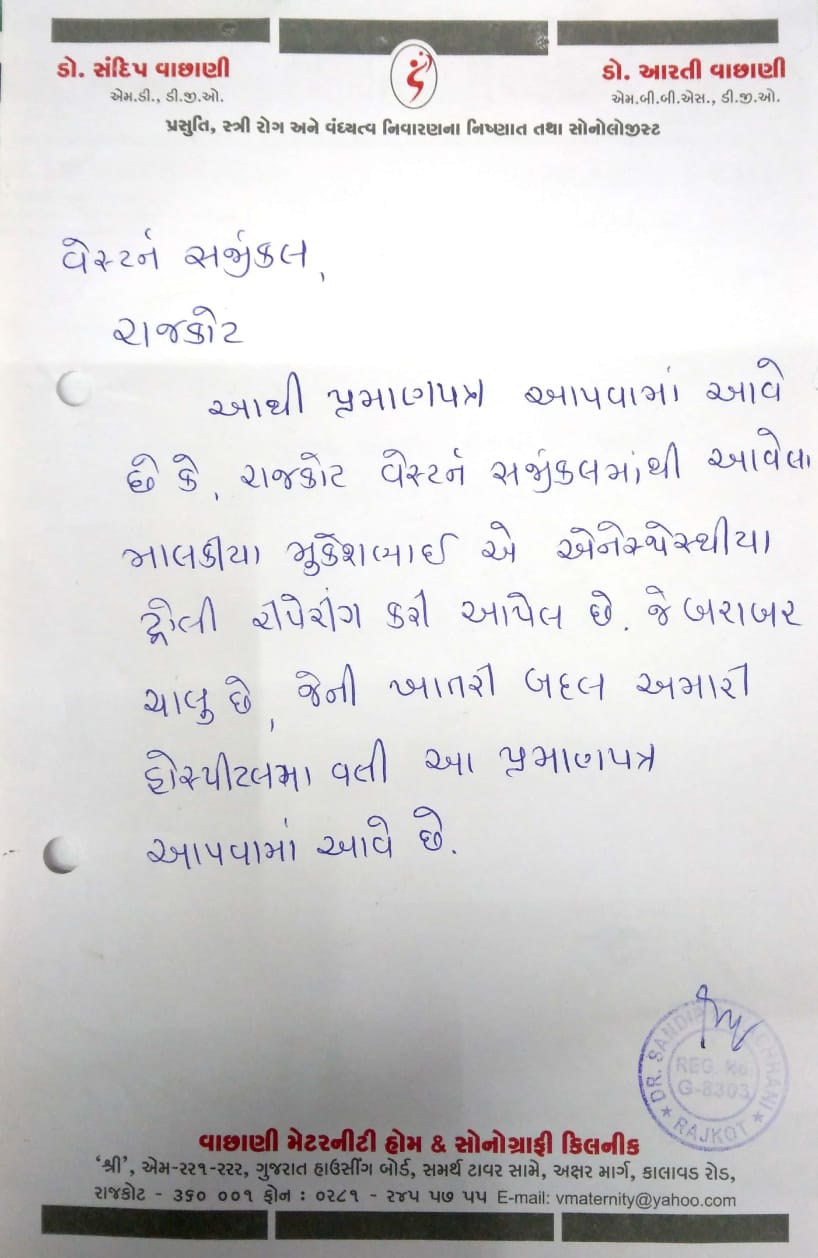 ડો. સંદિપ વાછાણી
એમ.ડી., ડી.જી.ઓ.
ડો. આરતી વાછાણી
એમ.બી.બી.એસ., ડી.જી.ઓ.
પ્રસુતિ, સ્ત્રી રોગ અને વંધ્યત્વ નિવારણના નિષ્ણાત તથા સોનોલોજીસ્ટ
વેસ્ટર્ન સર્જીકલ,
રાજકોટ
આથી પ્રમાણપત્ર આપવામાં આવે
છે કે, રાજકોટ વેસ્ટર્ન સર્જીકલમાંથી આવેલા
માલકીયા મુકેશભાઈ એ એનેસ્થેસ્થીયા
ટ્રોલી રીપેરીંગ કરી આપેલ છે. જે બરાબર
ચાલુ છે, જેની ખાતરી બદલ અમારી
હોસ્પીટલમા વતી આ પ્રમાણપત્ર
આપવામાં આવે છે.
DR. SANDIP VACHHANI
REG. No.
G-8303
★ RAJKOT ★
વાછાણી મેટરનીટી હોમ & સોનોગ્રાફી કિલનીક
'શ્રી', એમ-૨૨૧-૨૨૨, ગુજરાત હાઉસીંગ બોર્ડ, સમર્થ ટાવર સામે, અક્ષર માર્ગ, કાલાવડ રોડ,
રાજકોટ - ૩૬૦ ૦૦૧ ફોન : ૦૨૮૧ - ૨૪૫ ૫૭ ૫૫ E-mail: vmaternity@yahoo.com